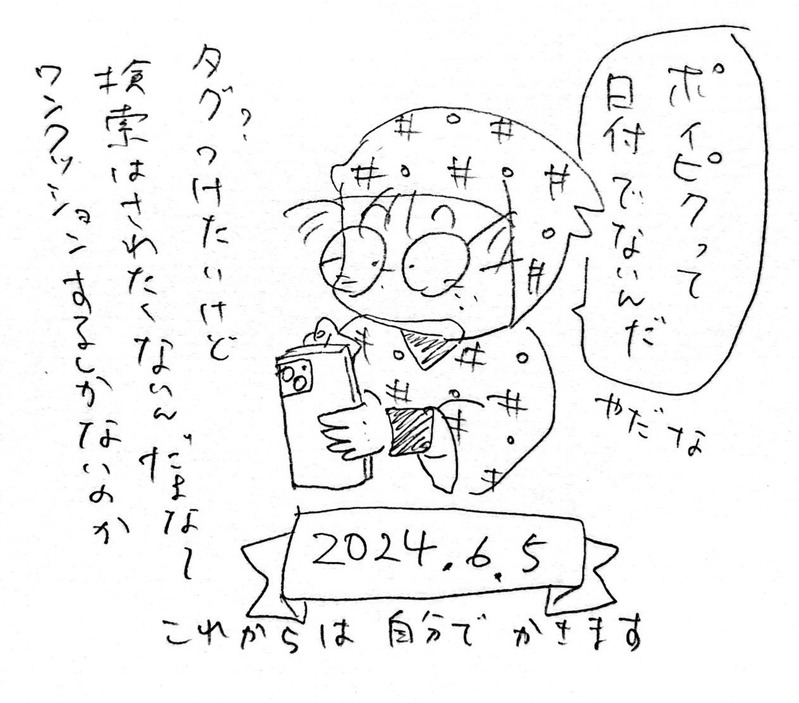 ポイピクって
日付でないんだ
やだな
タグ?つけたいけど
検索はされたくないんだよなー
ワンクッションするしかないのか
2024.6.5
これからは自分でかきます